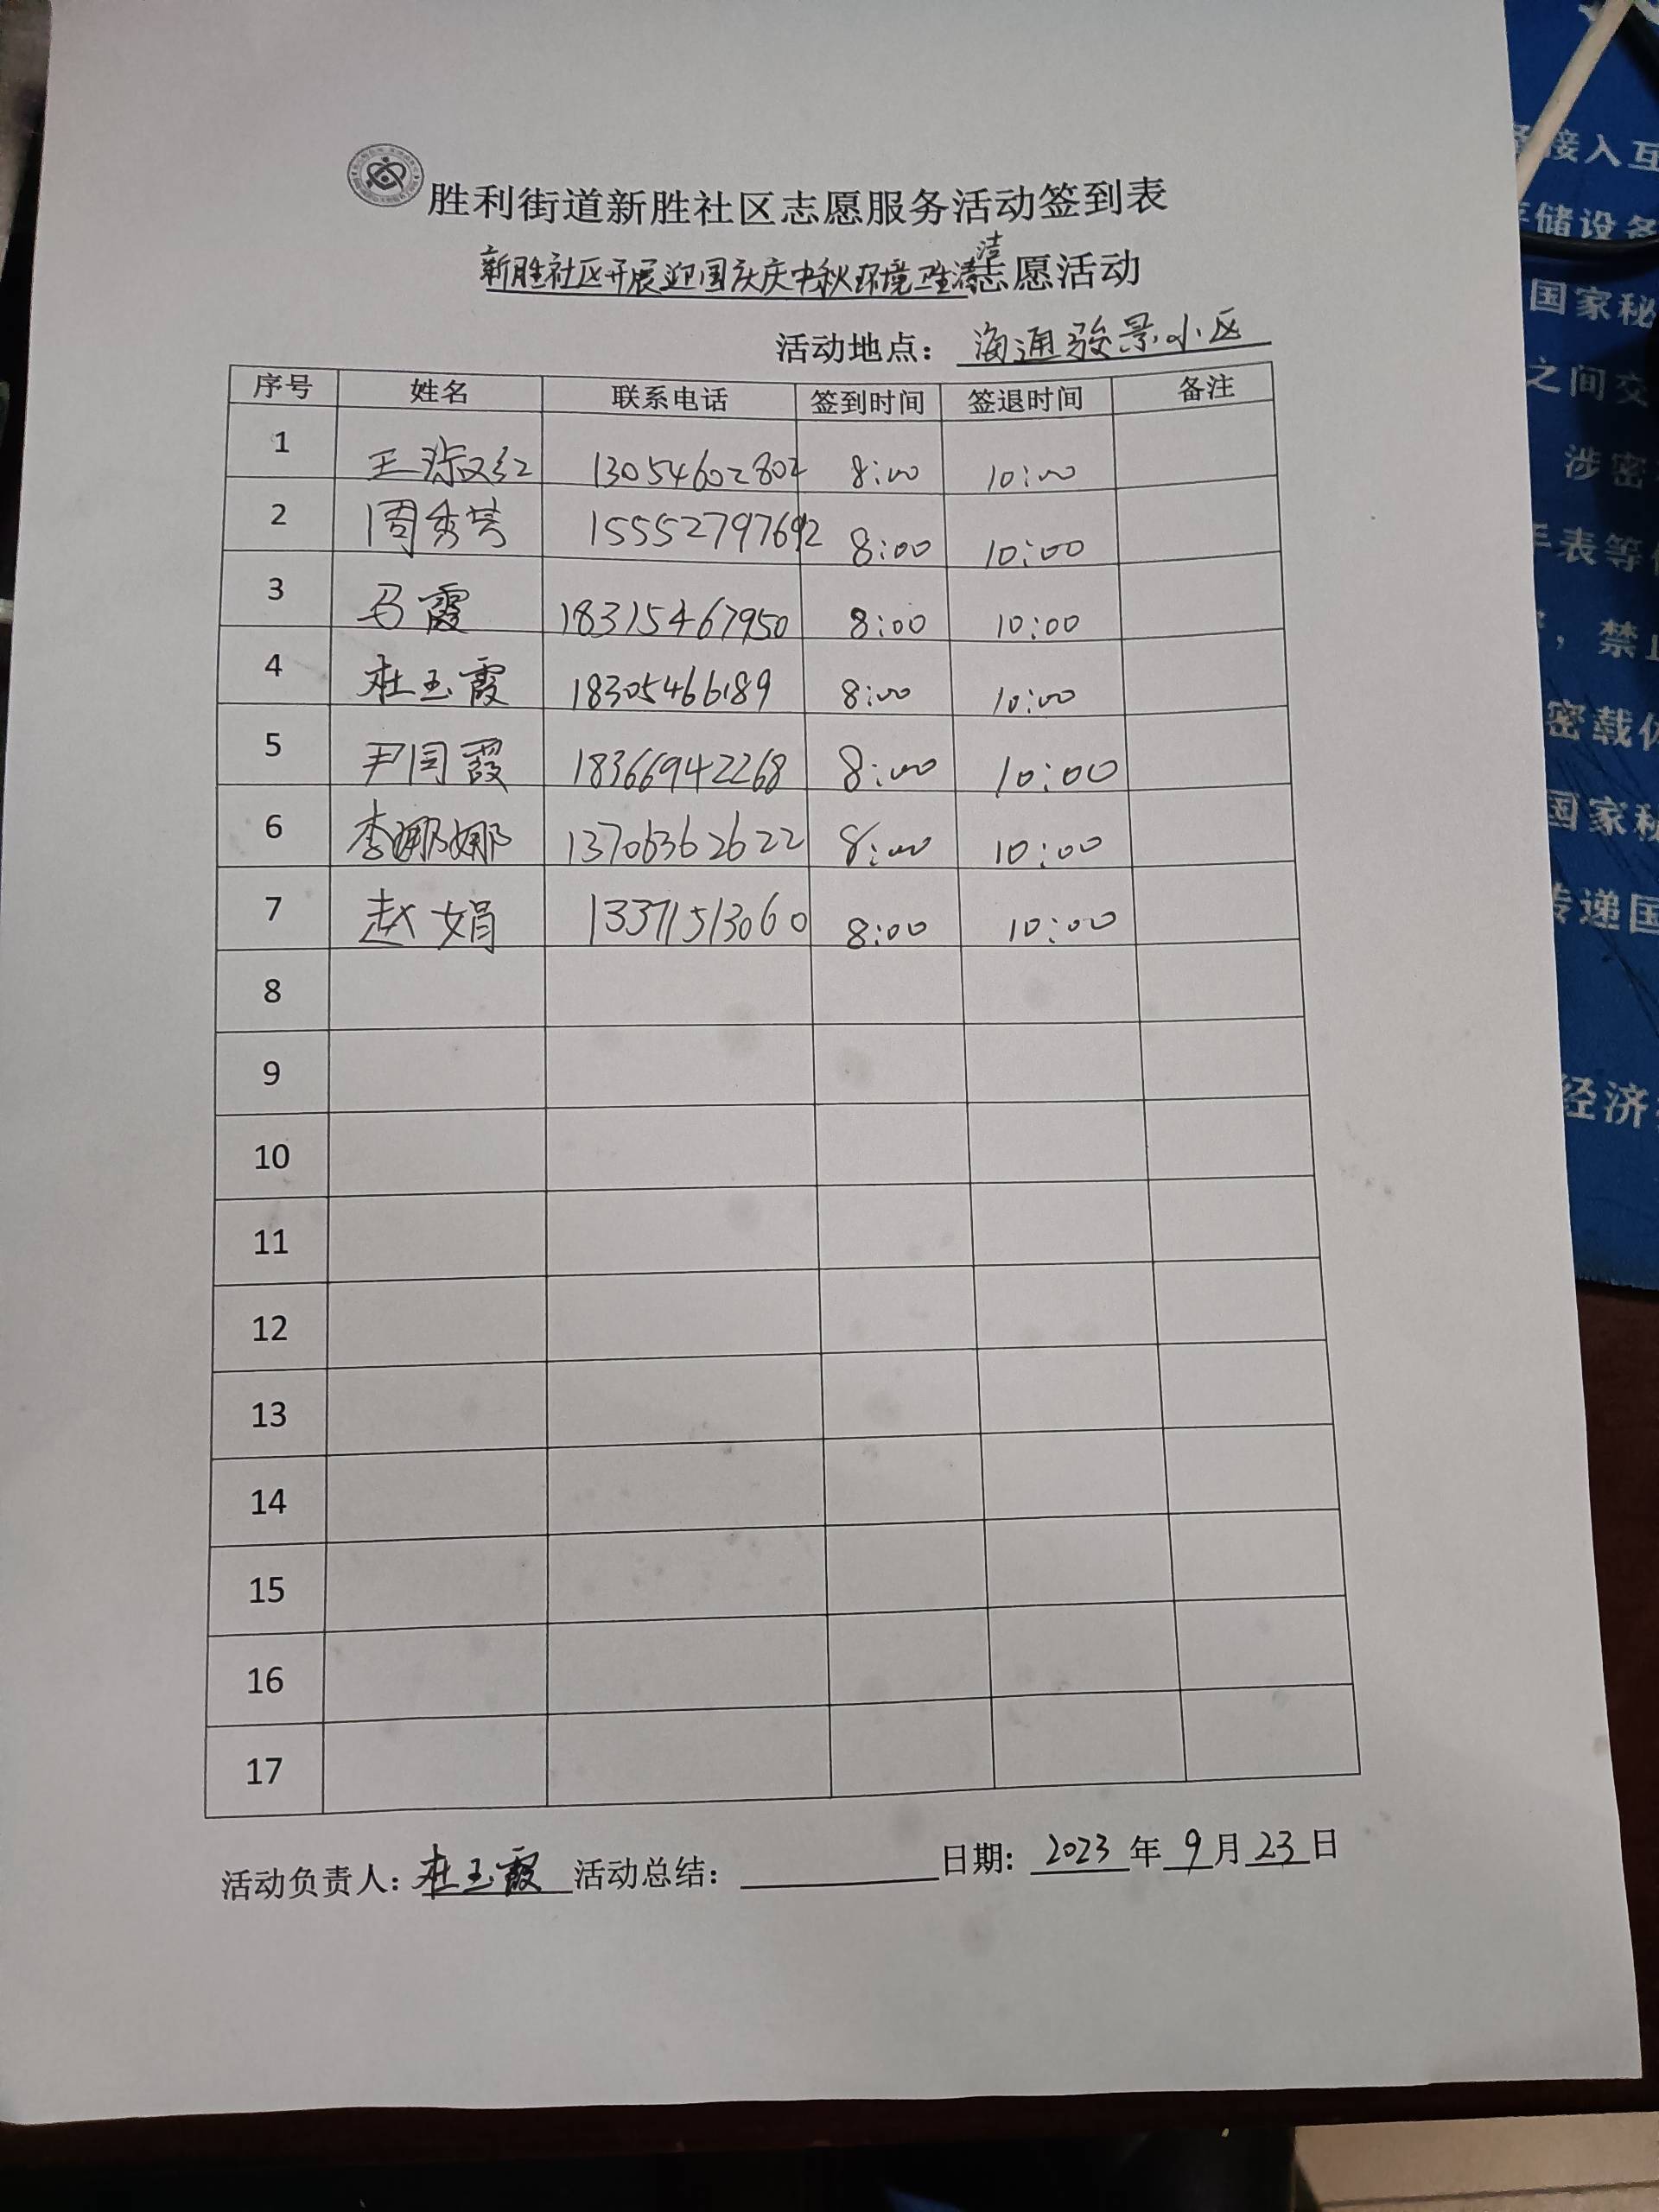 胜利街道新胜社区志愿服务活动签到表
新胜社区开展迎国庆庆中秋环境卫生清洁志愿活动
活动地点：海通骏景小区
序号 姓名 联系电话 签到时间 签退时间 备注
1 王淑红 13054602802 8:00 10:00
2 周秀芳 15552797692 8:00 10:00
3 马霞 18315467950 8:00 10:00
4 杜玉霞 18305466189 8:00 10:00
5 尹闫霞 18366942268 8:00 10:00
6 李娜娜 13706362622 8:00 10:00
7 赵娟 13371513060 8:00 10:00
8
9
10
11
12
13
14
15
16
17
活动负责人：杜玉霞 活动总结： 日期：2023年9月23日
接入互
存储设备
国家秘
之间交
涉密
手表等
，禁止
密载体
国家秘
传递国
经济